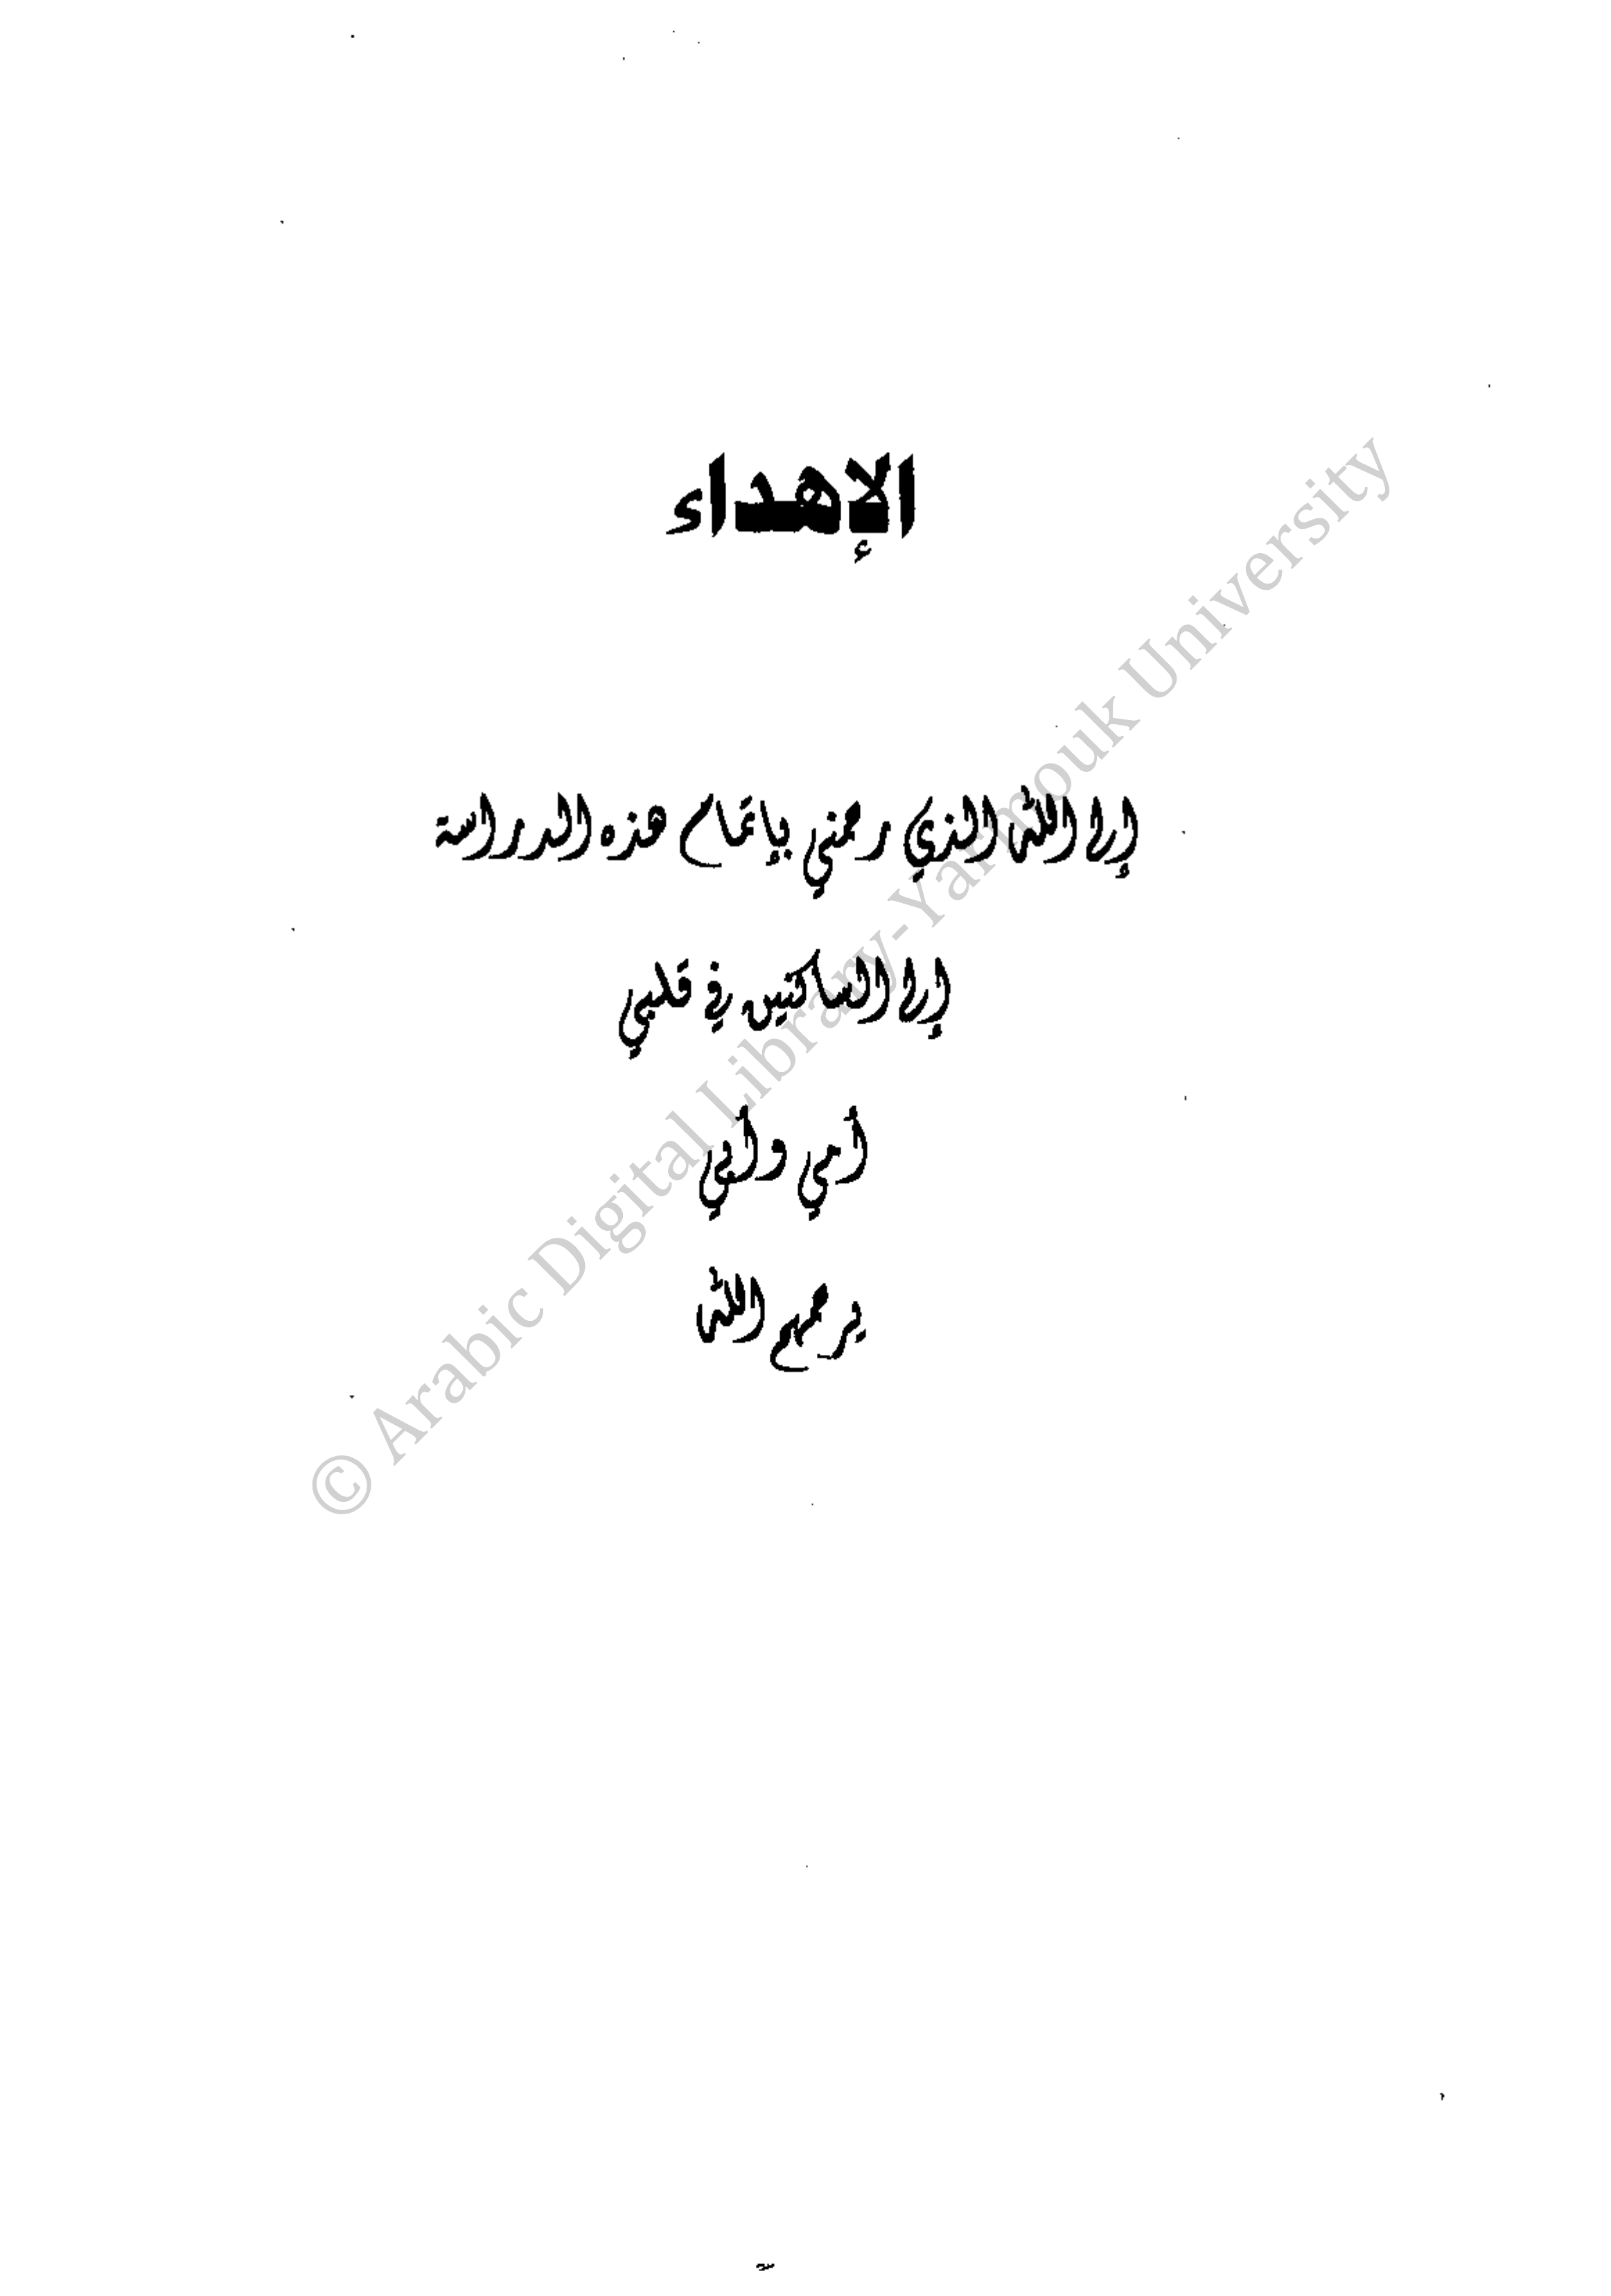 الإهداء
إلى الله الذي رحمني بإتمام هذه الدراسة
إلى الساكنين في قلبي
أمي وأبي
يرحمهم الله
© Arabic Digital Library-Yarmouk University